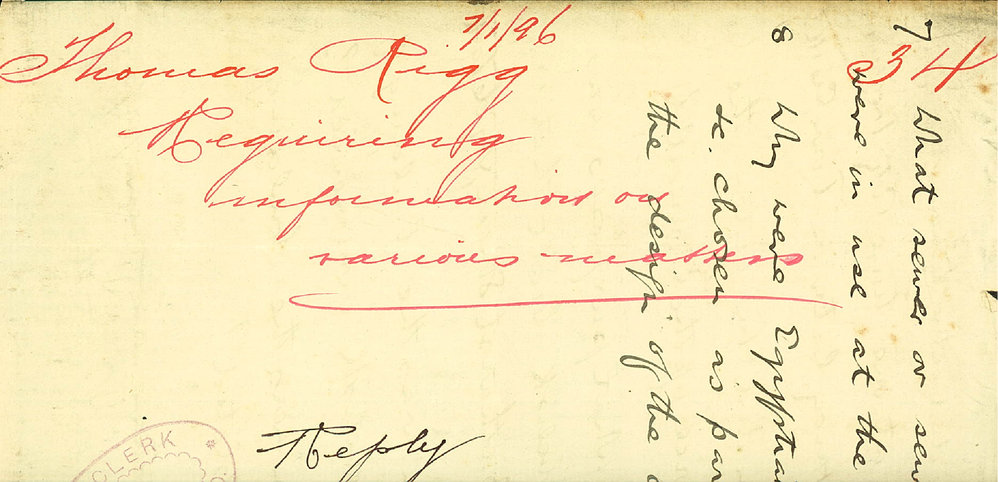 7/1/96
34
Thomas Rigg
Requiring
information on
various matters
Reply
CLERK
7 What sewer or
were in use at the
8 Why were
&c. chosen as
the design of the